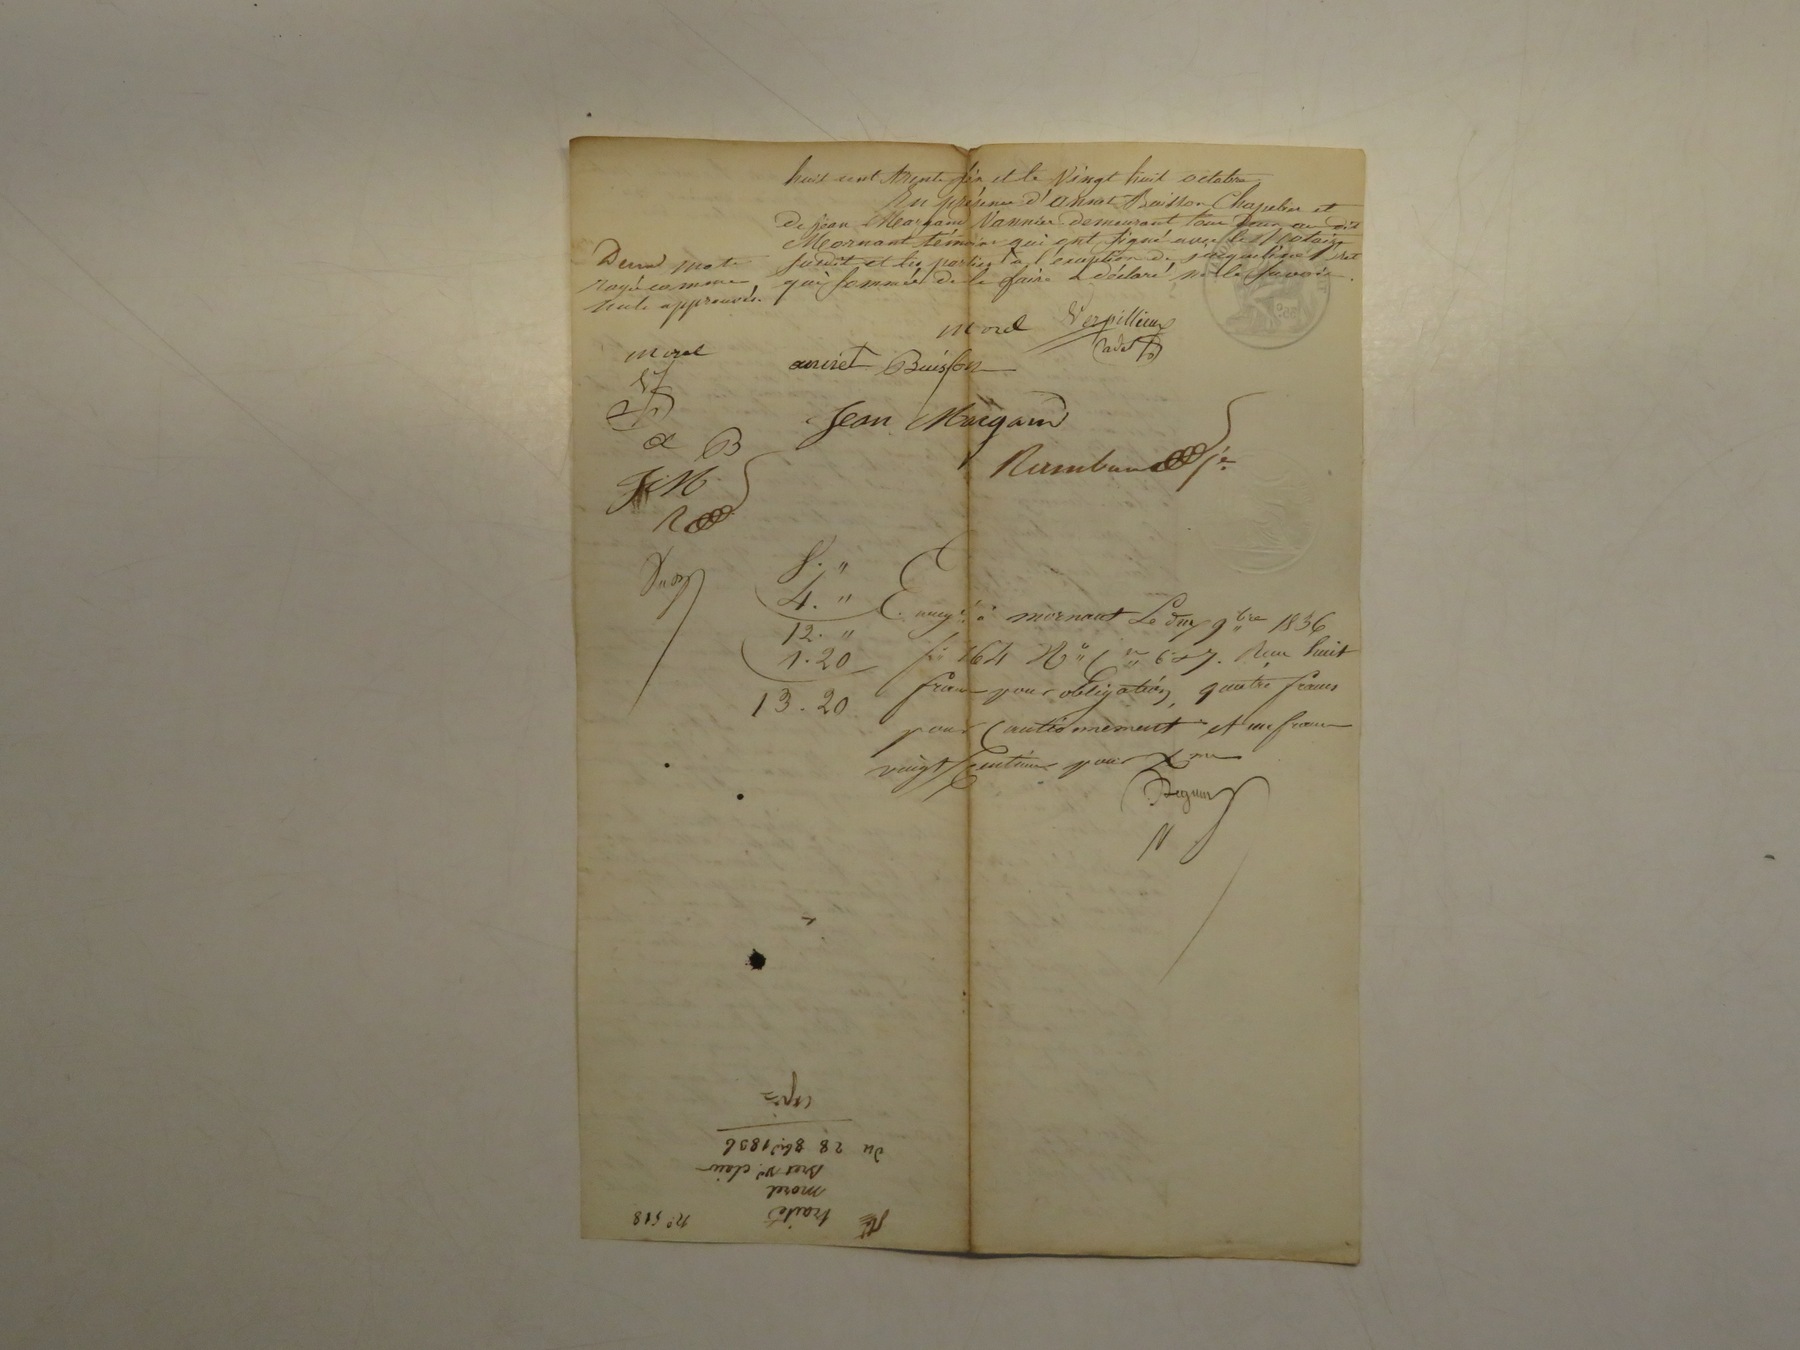 huit cent trente six et le Vingt huit octobre,
En présence d'annet Buisson Chapelier et
de Jean Margand Vannier demeurant tous deux au dit
Mornant témoins qui ont signé avec le Notaire
susdit et les parties à l'exception de Jacqueline Bret
qui sommée de le faire a déclaré ne le savoir.
Deux mots
rayés comme
nuls approuvés.
morel
Verpillieux
cadet
annet Buisson
Jean Margand
Rambaud je
morel
V
a B
J M
R
8. "
4. "
12. "
1. 20
13. 20
Enregé à mornant Le deux 9bre 1836
fo 164 Ro C 6 et 7. Reçu huit
francs pour obligation, quatre francs
pour Cautionnement et un franc
vingt Centimes pour Xme
no 518
traité
morel
Bret Ve
du 28 8bre 1836